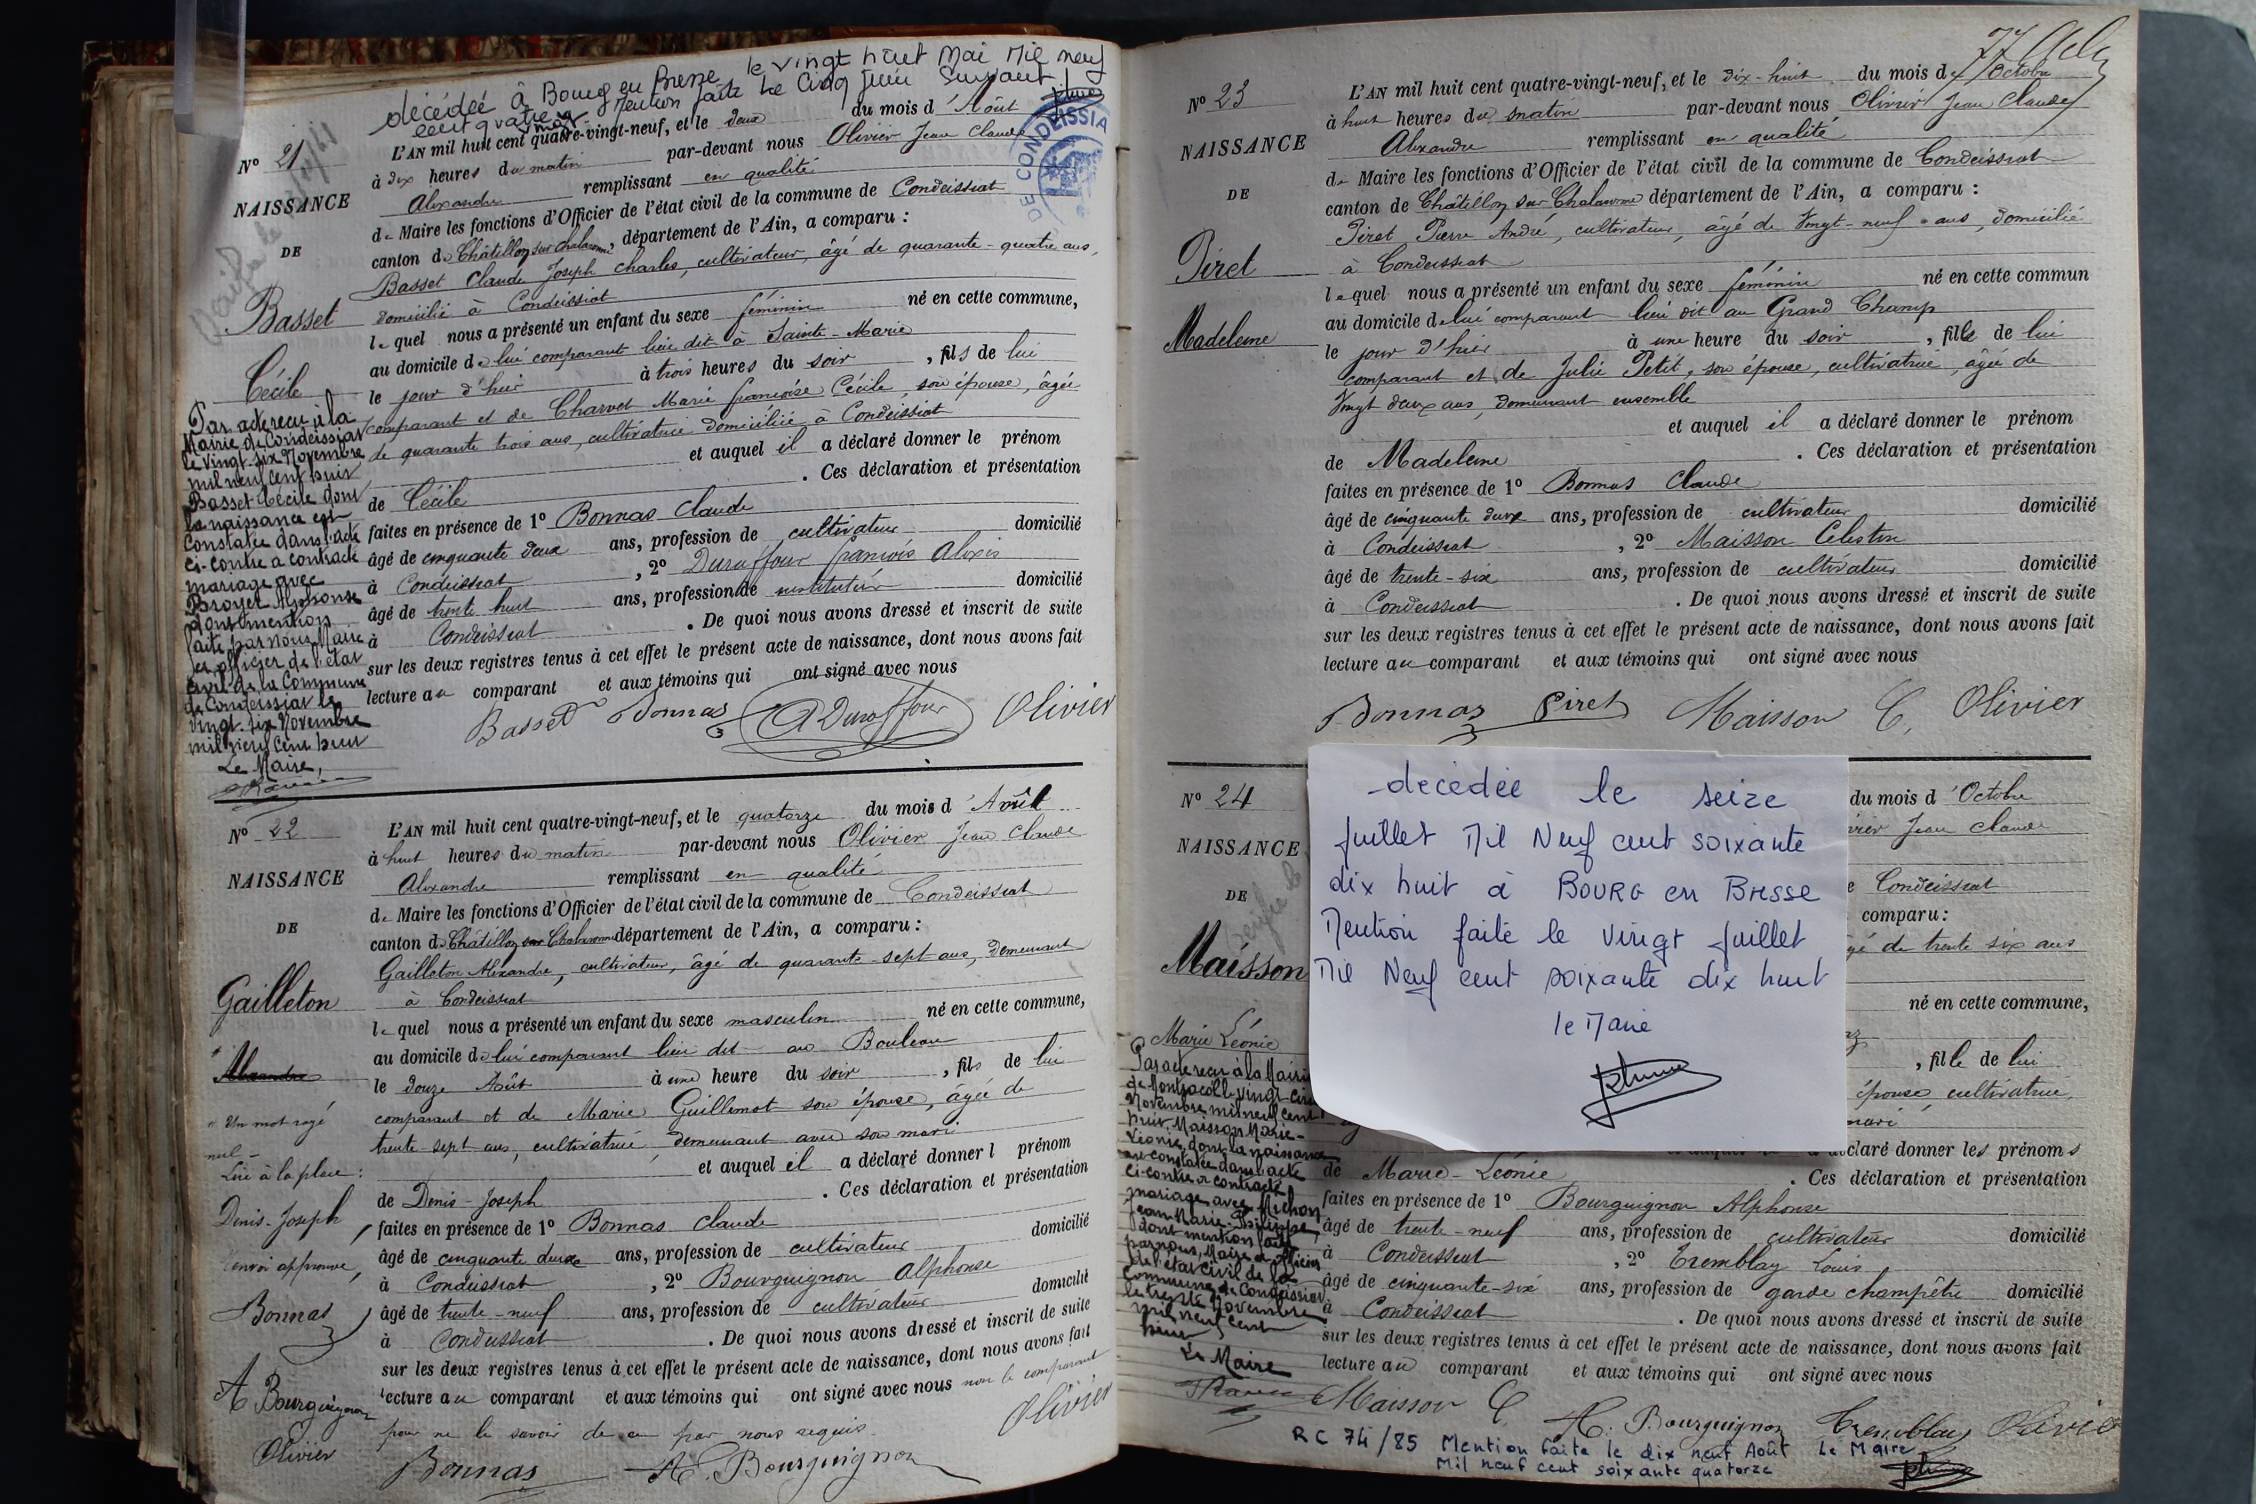 décédée à Bourg en Bresse le vingt huit Mai Mil neuf
cent quatre vingt Mention faite le Cinq Juin Suivant
N° 21
NAISSANCE
DE
Basset
Cécile
Par acte reçu à la
Mairie de Condeissiat
le vingt-six Novembre
mil neuf cent huit
Basset Cécile dont
la naissance est
constatée dans l'acte
ci-contre a contracté
mariage avec
Broyer Alphonse
dont mention
faite par nous Maire
et officier de l'état
civil de la Commune
de Condeissiat le
vingt-six Novembre
mil neuf cent huit
Le Maire,
L'AN mil huit cent quatre-vingt-neuf, et le deux du mois d'Août
à dix heures du matin par-devant nous Olivier Jean Claude
Alexandre remplissant en qualité
de Maire les fonctions d'Officier de l'état civil de la commune de Condeissiat
canton de Châtillon sur Chalaronne, département de l'Ain, a comparu :
Basset Claude Joseph Charles, cultivateur, âgé de quarante-quatre ans,
domicilié à Condeissiat
lequel nous a présenté un enfant du sexe féminin né en cette commune,
au domicile de lui comparant lieu dit à Sainte-Marie
le jour d'hier à trois heures du soir, fils de lui
comparant et de Charvet Marie Françoise Cécile, son épouse, âgée
de quarante trois ans, cultivatrice domiciliée à Condeissiat
et auquel il a déclaré donner le prénom
de Cécile . Ces déclaration et présentation
faites en présence de 1° Bonnas Claude
âgé de cinquante deux ans, profession de cultivateur domicilié
à Condeissiat, 2° Duraffour François Alexis
âgé de trente huit ans, profession de instituteur domicilié
à Condeissiat . De quoi nous avons dressé et inscrit de suite
sur les deux registres tenus à cet effet le présent acte de naissance, dont nous avons fait
lecture au comparant et aux témoins qui ont signé avec nous
Basset Bonnas A Duraffour Olivier
DE CONDEISSIA
N° 22
NAISSANCE
DE
Gailleton
Alexandre
Un mot rayé
nul -
Lire à la place :
Denis-Joseph
renvoi approuvé,
Bonnas
A Bourguignon
Olivier
L'AN mil huit cent quatre-vingt-neuf, et le quatorze du mois d'Août
à huit heures du matin par-devant nous Olivier Jean Claude
Alexandre remplissant en qualité
de Maire les fonctions d'Officier de l'état civil de la commune de Condeissiat
canton de Châtillon sur Chalaronne département de l'Ain, a comparu :
Gailleton Alexandre, cultivateur, âgé de quarante-sept ans, demeurant
à Condeissiat
lequel nous a présenté un enfant du sexe masculin né en cette commune,
au domicile de lui comparant lieu dit au Bouleau
le douze Août à une heure du soir, fils de lui
comparant et de Marie Guillemot son épouse, âgée de
trente-sept ans, cultivatrice, demeurant avec son mari
et auquel il a déclaré donner l prénom
de Denis-Joseph . Ces déclaration et présentation
faites en présence de 1° Bonnas Claude
âgé de cinquante deux ans, profession de cultivateur domicilié
à Condeissiat, 2° Bourguignon Alphonse
âgé de trente-neuf ans, profession de cultivateur domicilié
à Condeissiat . De quoi nous avons dressé et inscrit de suite
sur les deux registres tenus à cet effet le présent acte de naissance, dont nous avons fait
lecture au comparant et aux témoins qui ont signé avec nous non le comparant
pour ne le savoir de ce par nous requis.
Bonnas A. Bourguignon Olivier
N° 23
NAISSANCE
DE
Piret
Madeleine
L'AN mil huit cent quatre-vingt-neuf, et le dix-huit du mois d'Octobre
à huit heures du matin par-devant nous Olivier Jean Claude
Alexandre remplissant en qualité
de Maire les fonctions d'Officier de l'état civil de la commune de Condeissiat
canton de Châtillon sur Chalaronne département de l'Ain, a comparu :
Piret Pierre André, cultivateur, âgé de vingt-neuf ans, domicilié
à Condeissiat
lequel nous a présenté un enfant du sexe féminin né en cette commun
au domicile de lui comparant lieu dit au Grand Champ
le jour d'hier à une heure du soir, fille de lui
comparant et de Julie Petit, son épouse, cultivatrice, âgée de
vingt deux ans, demeurant ensemble
et auquel il a déclaré donner le prénom
de Madeleine . Ces déclaration et présentation
faites en présence de 1° Bonnas Claude
âgé de cinquante deux ans, profession de cultivateur domicilié
à Condeissiat, 2° Maisson Célestin
âgé de trente-six ans, profession de cultivateur domicilié
à Condeissiat . De quoi nous avons dressé et inscrit de suite
sur les deux registres tenus à cet effet le présent acte de naissance, dont nous avons fait
lecture au comparant et aux témoins qui ont signé avec nous
Bonnas Piret Maisson C, Olivier
N° 24
NAISSANCE
DE
Maisson
Marie Léonie
Par acte reçu à la Mairie
de Montracol le vingt-cinq
Novembre mil neuf cent
huit, Maisson Marie-
Léonie, dont la naissance
est constatée dans l'acte
ci-contre a contracté
mariage avec Michon
Jean-Marie-Philippe,
dont mention faite
par nous, Maire et officier
de l'état civil de la
commune de Condeissiat
le trente Novembre
mil neuf cent
huit
Le Maire
décédée le seize
Juillet Mil Neuf cent soixante
dix huit à BOURG en Bresse
Mention faite le vingt Juillet
Mil Neuf cent soixante dix huit
le Maire
du mois d'Octobre
vier Jean Claude
e Condeissiat
comparu :
gé de trente six ans
né en cette commune,
, fille de lui
épouse, cultivatrice,
mari
déclaré donner les prénoms
de Marie-Léonie . Ces déclaration et présentation
faites en présence de 1° Bourguignon Alphonse
âgé de trente-neuf ans, profession de cultivateur domicilié
à Condeissiat, 2° Tremblay Louis
âgé de cinquante-six ans, profession de garde champêtre domicilié
à Condeissiat . De quoi nous avons dressé et inscrit de suite
sur les deux registres tenus à cet effet le présent acte de naissance, dont nous avons fait
lecture au comparant et aux témoins qui ont signé avec nous
Maisson C A. Bourguignon Tremblay Olivie
RC 74/85 Mention faite le dix neuf Août Le Maire
Mil neuf cent soixante quatorze